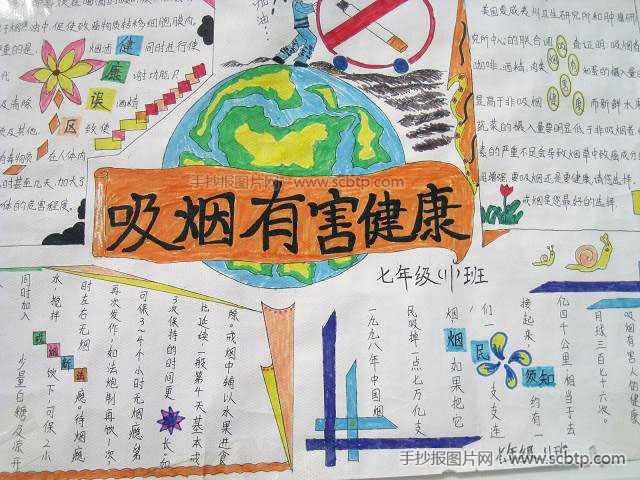 于烟油中,但使致癌物质转移细胞膜内,
重的是,烟油
健
同时进行使
代
康
谢功能只
及清除
误
酒精
及其他.
区
致使
有毒物质
在人体内
时甚至几天,加大了
体的危害程度.
加油
美国夏威夷州卫生研究所和肿瘤研
究所中心的联合调
查证明,吸烟
咖啡,酒精,肉类
如素的摄入量
显高于非吸烟
而新鲜水
蔬菜的摄入量要明显低于非吸烟者
素的严重不足会导致烟草中致癌成分
戒烟是您最好的选择.
手抄报图片网 - www.scbtp.com
吸烟有害健康
七年级(11)班
除。戒烟中辅以水果进食
比延续一般第4天基本戒
3次保持的时间更长,如
可保3~4个小时无烟瘾,第
再次发作,如法炮制再饮1次,
时左右无烟瘾。待烟瘾
水,搅拌
饮下,可保2小
同时加入
少量白糖及凉开
戒烟新法
吸烟有害人人健康
月球三百七十六次。
亿四千公里,相当于去
接起来,约有一
们一支支连
烟,如果把它
民吸掉一点七万亿支
一九九八年中国烟
烟民须知
七年级11班
手抄报图片网 www.scbtp.com